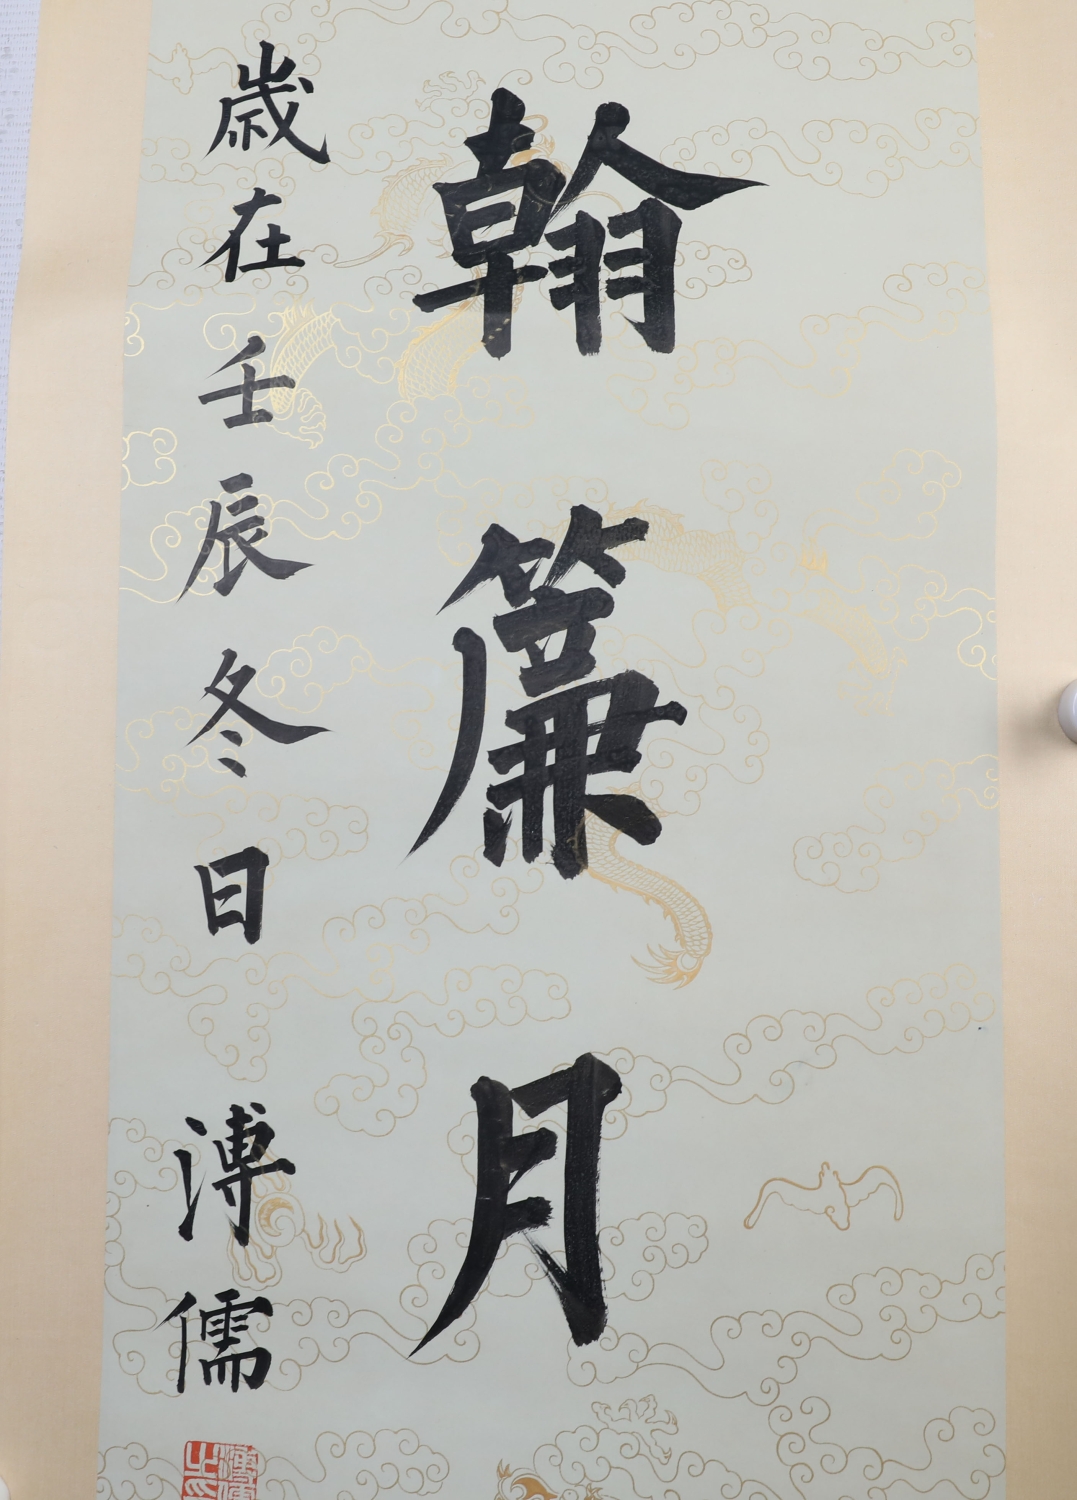 翰簾月
歲在壬辰冬日 溥儒